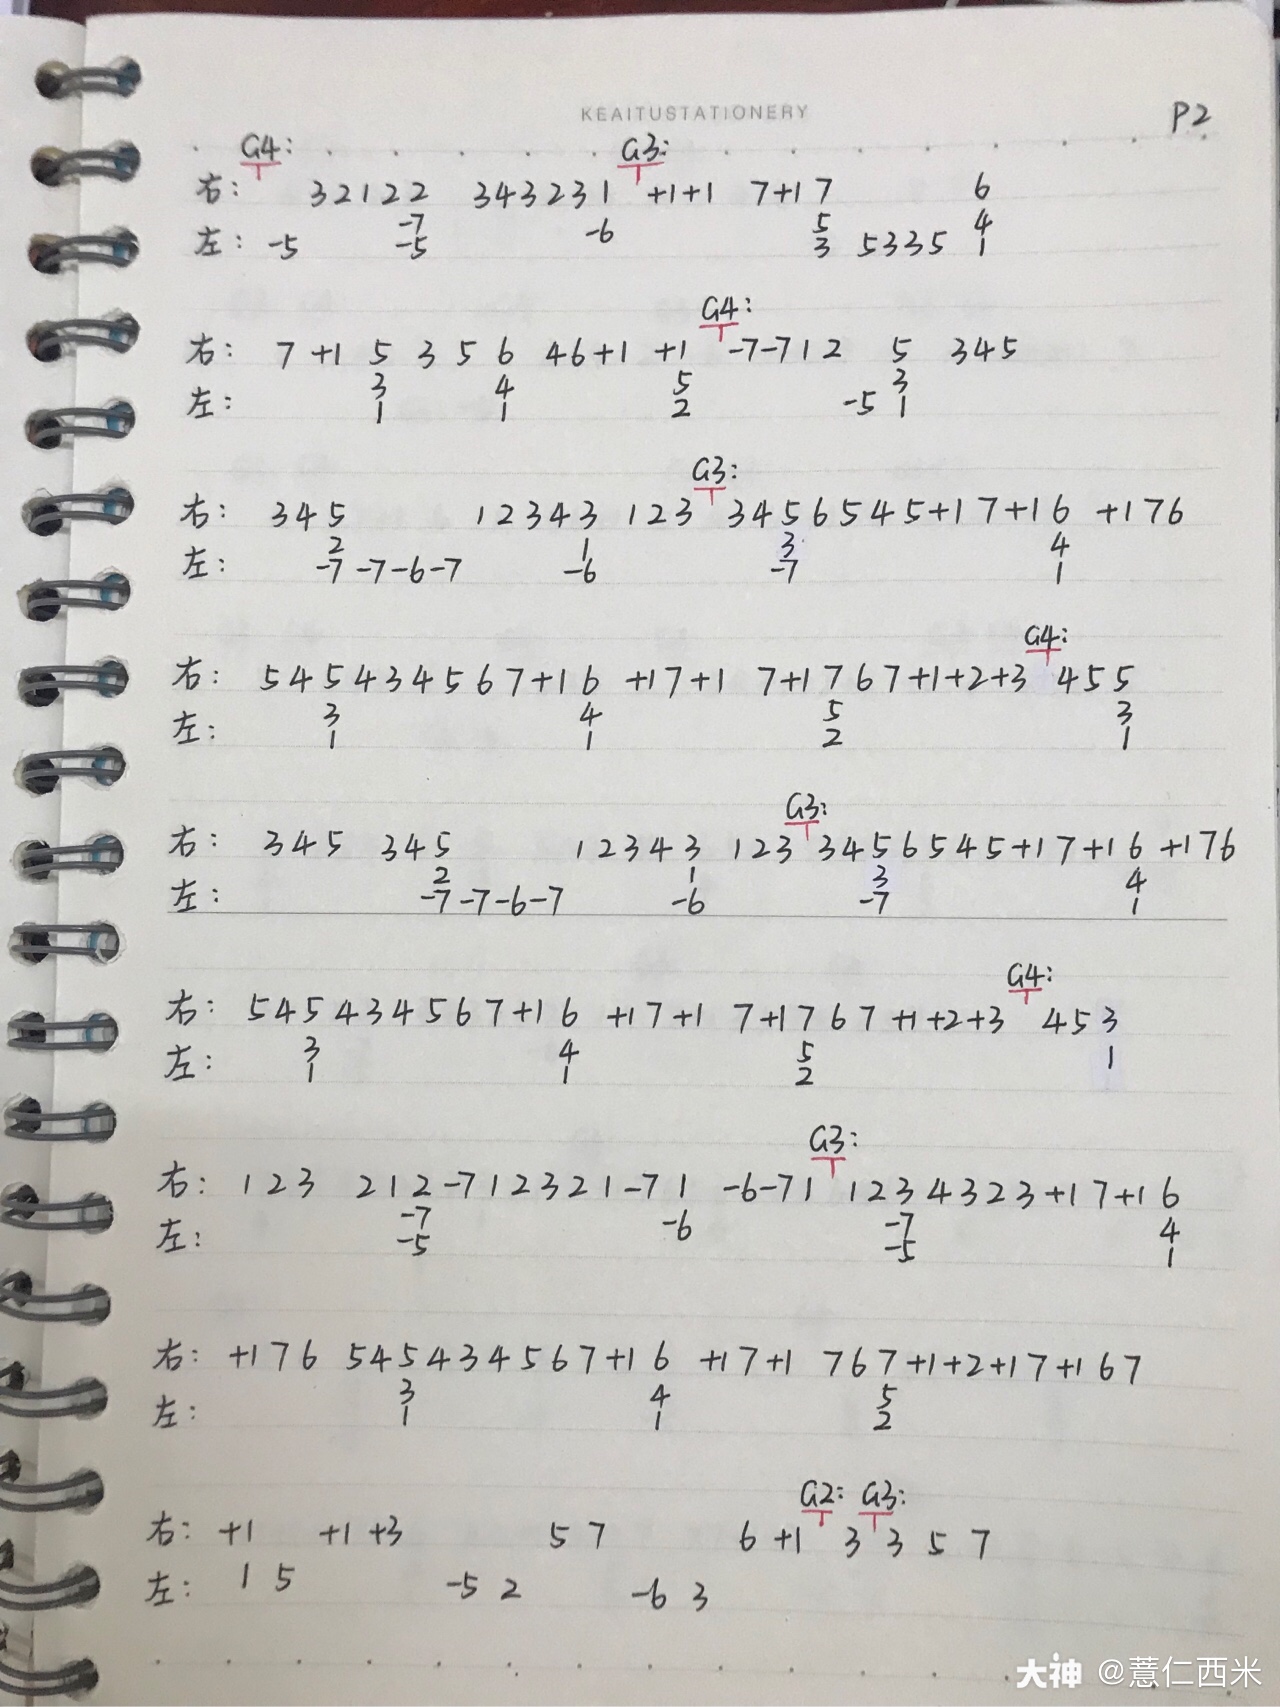 KEAITUSTATIONERY
P2
G4: G3:
右: 3 2 1 2 2 3 4 3 2 3 1 +1 +1 7 +1 7 6
-7 5 4
左: -5 -5 -6 3 5 3 3 5 1
G4:
右: 7 +1 5 3 5 6 4 6 +1 +1 -7 -7 1 2 5 3 4 5
3 4 5 3
左: 1 1 2 -5 1
G3:
右: 3 4 5 1 2 3 4 3 1 2 3 3 4 5 6 5 4 5 +1 7 +1 6 +1 7 6
2 1 3 4
左: -7 -7 -6 -7 -6 -7 1
G4:
右: 5 4 5 4 3 4 5 6 7 +1 6 +1 7 +1 7 +1 7 6 7 +1 +2 +3 4 5 5
3 4 5 3
左: 1 1 2 1
G3:
右: 3 4 5 3 4 5 1 2 3 4 3 1 2 3 3 4 5 6 5 4 5 +1 7 +1 6 +1 7 6
2 1 3 4
左: -7 -7 -6 -7 -6 -7 1
G4:
右: 5 4 5 4 3 4 5 6 7 +1 6 +1 7 +1 7 +1 7 6 7 +1 +2 +3 4 5 3
3 4 5 1
左: 1 1 2
G3:
右: 1 2 3 2 1 2 -7 1 2 3 2 1 -7 1 -6 -7 1 1 2 3 4 3 2 3 +1 7 +1 6
-7 -6 -7 4
左: -5 -5 1
右: +1 7 6 5 4 5 4 3 4 5 6 7 +1 6 +1 7 +1 7 6 7 +1 +2 +1 7 +1 6 7
3 4 5
左: 1 1 2
G2: G3:
右: +1 +1 +3 5 7 6 +1 3 3 5 7
左: 1 5 -5 2 -6 3
大神 @薏仁西米